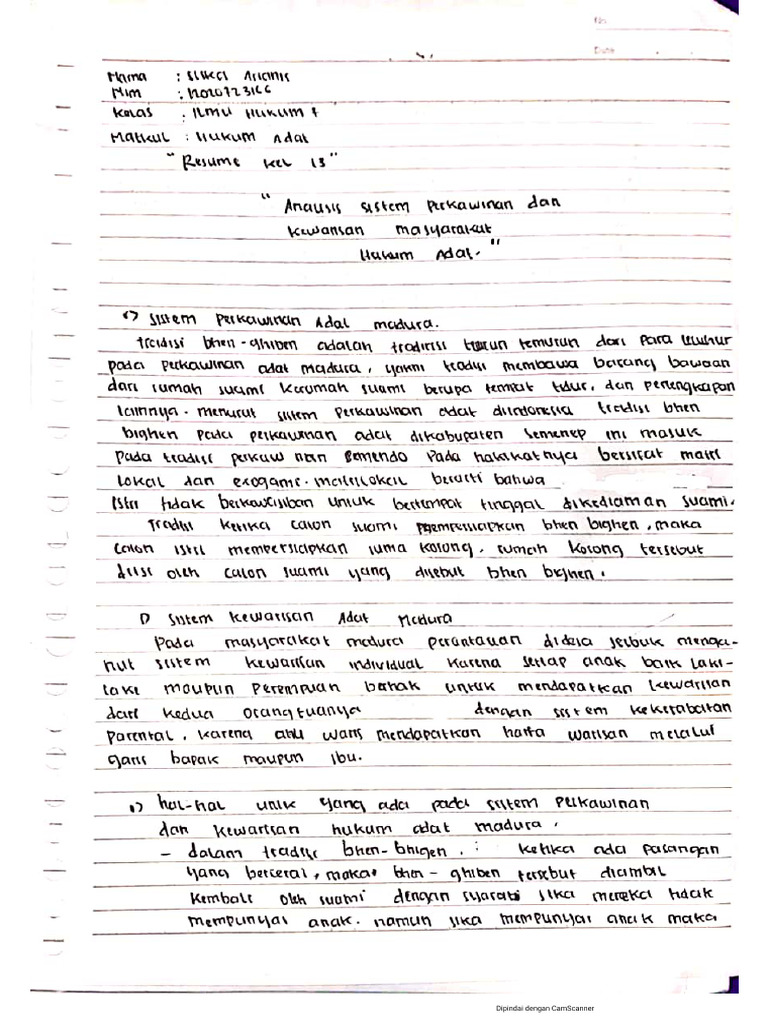 No
Date
Nama : Siska Arianis
Nim : 12020723166
Kelas : ILmu Hukum F
Matkul : Hukum Adat
"Resume kel 13"
" Analisis sistem perkawinan dan
kewarisan masyarakat
Hukum Adat. "
1) Sistem Perkawinan Adat madura.
tradisi bhen-ghiben adalah tradirisi turun temurun dari para leluhur
pada perkawinan adat madura, yakni tradisi membawa barang bawaan
dari rumah suami kerumah suami berupa tempat tidur, dan perlengkapan
lainnya. menurut sistem perkawinan adat diindonesia tradisi bhen
bighen pada perkawinan adat dikabupaten Semenep ini masuk
pada tradisi perkawinan Semendo pada hakikatnya bersifat matri
lokal dan exogami. matrilokal berarti bahwa
Istri tidak berkewajiban untuk bertempat tinggal dikediaman suami.
Tradisi ketika calon suami mempersiapkan bhen bighen, maka
calon istri mempersiapkan ruma kosong, rumah kosong tersebut
diisi oleh calon suami yang disebut bhen bighen.
1) Sistem kewarisan Adat Madura
Pada masyarakat madura perantauan didesa serbuk menga-
nut sistem kewarisan individual karena setiap anak baik laki-
laki maupun perempuan berhak untuk mendapatkan kewarisan
dari kedua orangtuanya dengan sistem kekerabatan
parental, karena ahli waris mendapatkan harta warisan melalui
garis bapak maupun ibu.
1) hal-hal unik yang ada pada sistem perkawinan
dan kewarisan hukum adat madura.
- dalam tradisi bhen-bhigen, : ketika ada pasangan
yang bercerai, maka bhen-ghiben tersebut diambil
kembali oleh suami dengan syarat jika mereka tidak
mempunyai anak. namun jika mempunyai anak maka
Dipindai dengan CamScanner